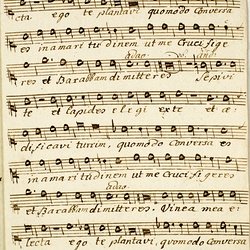 cta ego te plantavi quomodo Conversa
es in amaritudinem ut me Cruci fige
res et Barabbam dimitteres Sepivi
te et lapides elegi ex te et æ
dificavi turrim, quomodo Conversa es
in amaritudinem ut me Crucifigeres
et Barabbam dimitteres. Vinea mea e
lecta ego te plantavi, quomodo Conversa